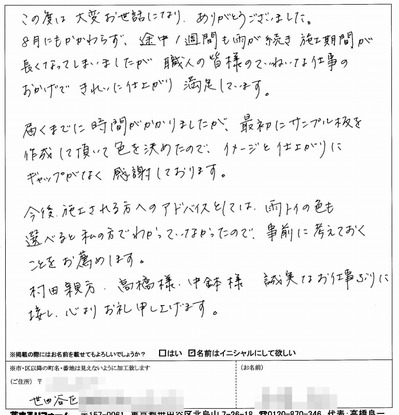 この度は大変お世話になり、ありがとうございました。
8月にもかかわらず、途中1週間も雨が続き施工期間が
長くなってしまいましたが職人の皆様のていねいな仕事の
おかげできれいに仕上がり満足しています。
届くまでに時間がかかりましたが、最初にサンプル板を
作成して頂いて色を決めたので、イメージと仕上がりに
ギャップがなく感謝しております。
今後、施工される方へのアドバイスとしては、雨トイの色も
選べると私の方でわかっていなかったので、事前に考えておく
ことをお薦めします。
村田親方、高橋様、中鉢様 誠実なお仕事ぶりに
接し、心よりお礼申し上げます。
※掲載の際にはお名前を載せてもよろしいでしょうか? □はい ☑名前はイニシャルにして欲しい
※市・区以降の町名・番地は見えないように加工致します
(ご住所) 〒
(お名前)
世田谷区
〒157-0061 東京都世田谷区北烏山7-26-18 ☎0120-870-346 代表:高橋良一